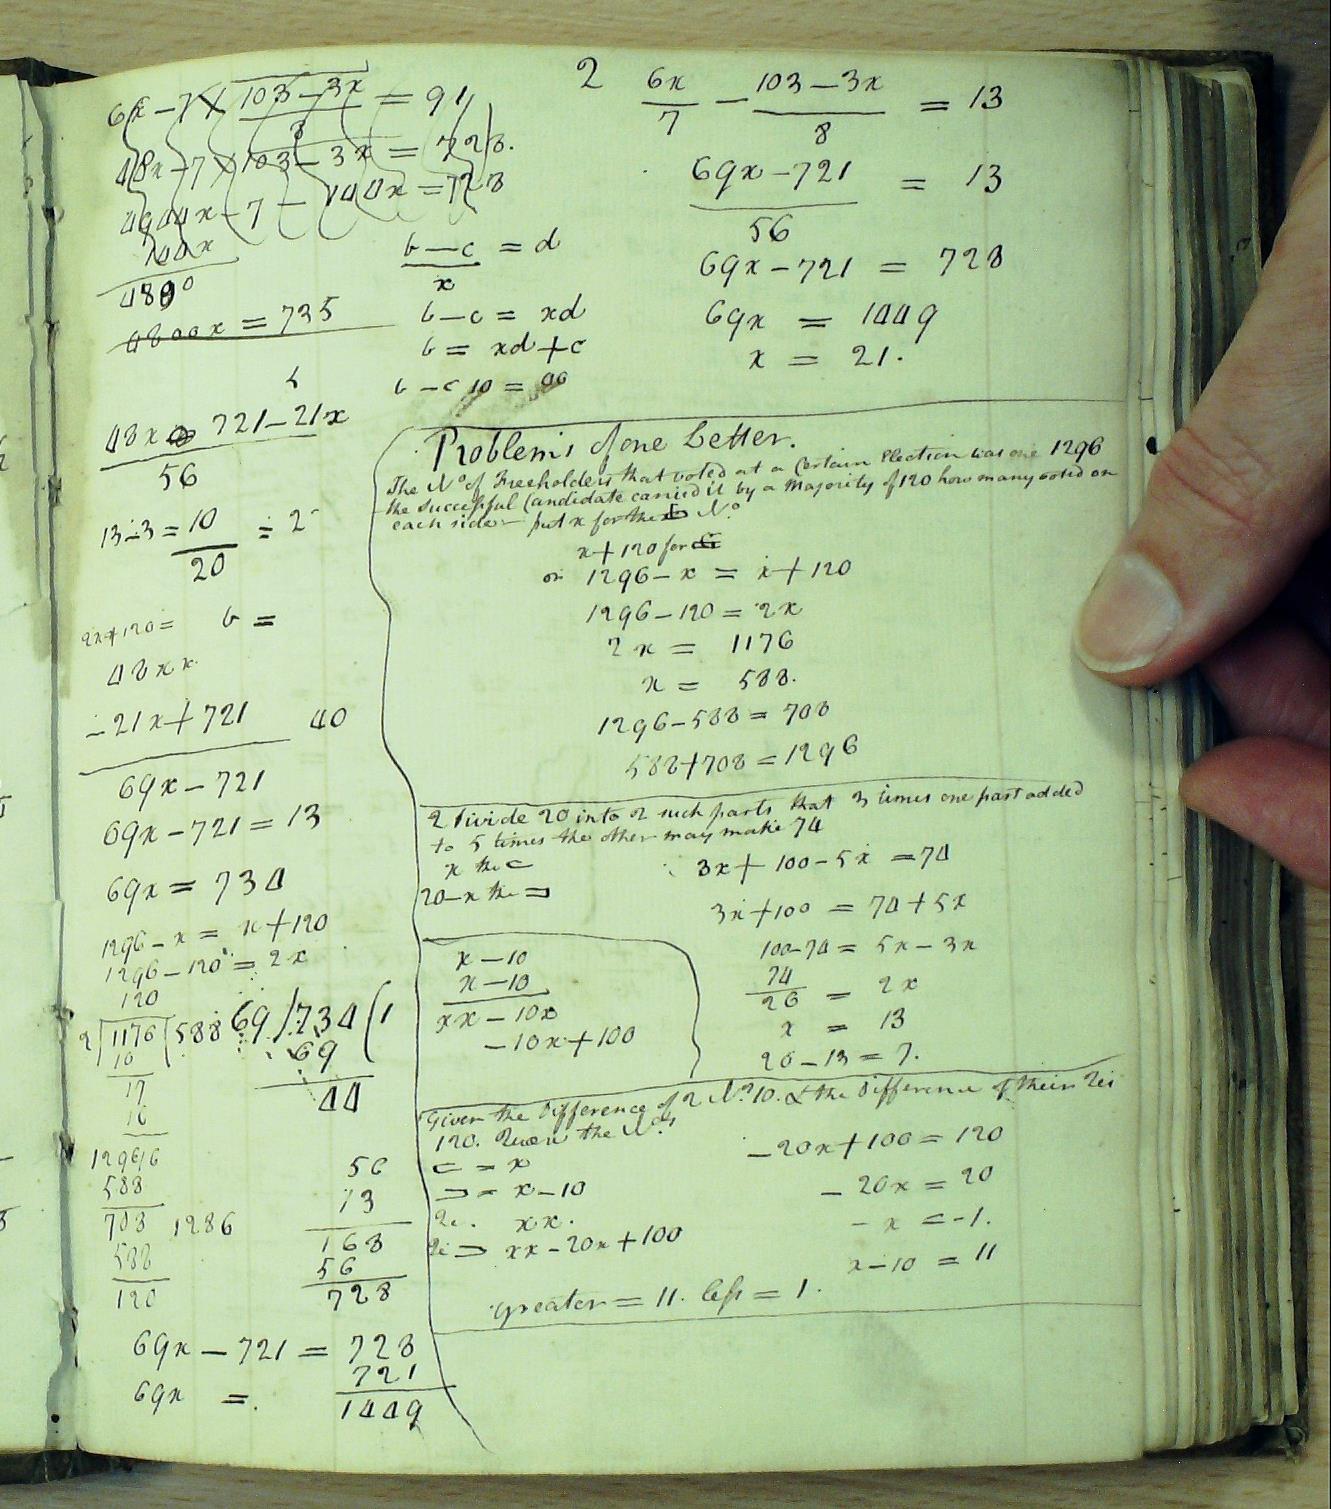 6x − 7 × 103 − 3x / 8 = 91
48x − 7 × 103 − 3x = 728.
4944x − 7 − 144x = 728
144x
4800
4800x = 735
b − c / x = d
b − c = xd
b = xd + c
b − c 10 = 90
48x 721 − 21x
56
13 − 3 = 10 / 20 = 2
2x + 120 = b =
48xx
− 21x + 721 40
69x − 721
69x − 721 = 13
69x = 734
1296 − x = x + 120
1296 − 120 = 2x
120
2)1176(588 69/734(1
10 69
17 44
16
1296
588
708 1286
588
120
56
13
168
56
728
69x − 721 = 728
721
69x = 1449
2 6x / 7 − 103 − 3x / 8 = 13
69x − 721 / 56 = 13
69x − 721 = 728
69x = 1449
x = 21.
Problems of one Letter.
The No of Freeholders that voted at a Certain Election was 1296
the successful Candidate carried it by a Majority of 120 how many voted on
each side put x for the No
x + 120 for
or 1296 − x = x + 120
1296 − 120 = 2x
2x = 1176
x = 588.
1296 − 588 = 708
588 + 708 = 1296
2 Divide 20 into 2 such parts that 3 times one part added
to 5 times the other may make 74
x the ⊂
20 − x the ⊐
3x + 100 − 5x = 74
3x + 100 = 74 + 5x
100 − 74 = 5x − 3x
74
26 = 2x
x = 13
20 − 13 = 7.
x − 10
x − 10
xx − 10x
− 10x + 100
Given the Difference of 2 Nos 10. & the Difference of their
120. the Nos
⊂ = x
⊐ = x − 10
xx.
⊐ xx − 20x + 100
− 20x + 100 = 120
− 20x = 20
− x = −1.
x − 10 = 11
Greater = 11. less = 1.